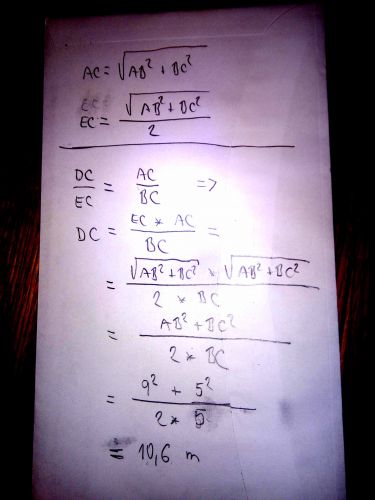 AC = √AB² + BC²
EC = √AB² + BC² / 2
DC / EC = AC / BC =>
DC = EC * AC / BC =
= √AB² + BC² * √AB² + BC² / 2 * BC
= AB² + BC² / 2 * BC
= 9² + 5² / 2 * 5
= 10,6 m